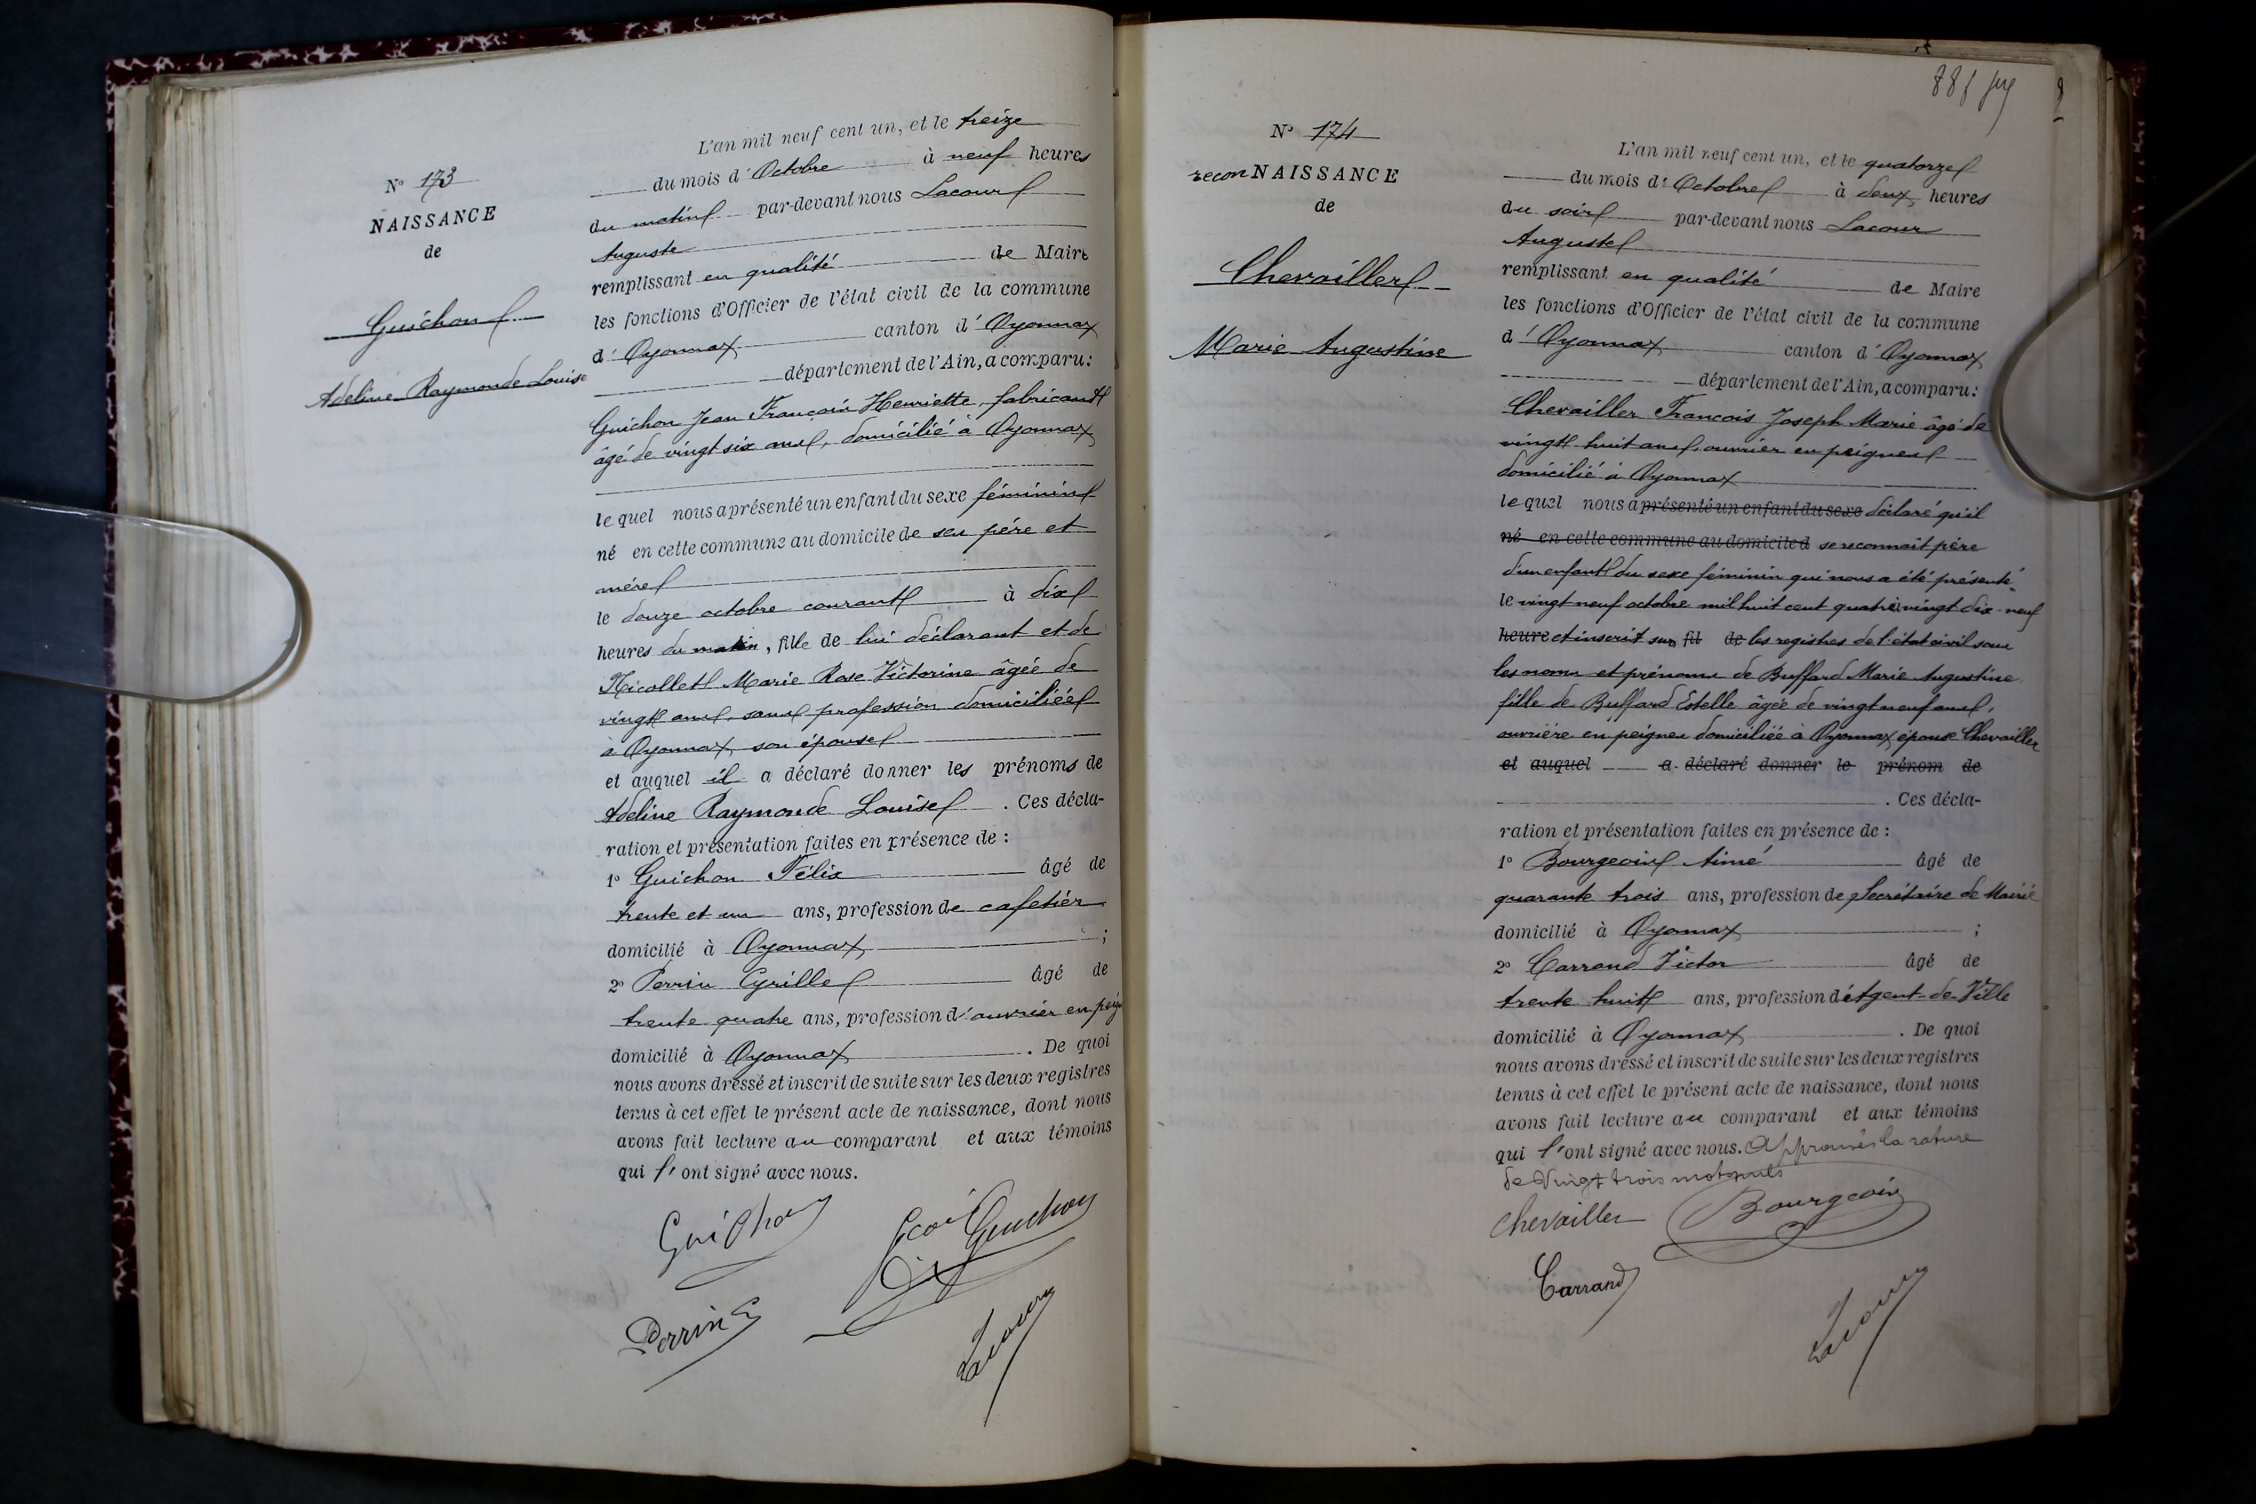 N° 173
NAISSANCE
de
Guichon
Adeline Raymonde Louise
L'an mil neuf cent un, et le treize
du mois d'Octobre à neuf heures
du matin par-devant nous Lacour
Auguste
remplissant en qualité de Maire
les fonctions d'Officier de l'état civil de la commune
d'Oyonnax canton d'Oyonnax
département de l'Ain, a comparu:
Guichon Jean François Henriette, fabricant
âgé de vingt six ans, domicilié à Oyonnax
le quel nous a présenté un enfant du sexe féminin
né en cette commune au domicile de ses père et
mère
le douze octobre courant à dix
heures du matin, fille de lui déclarant et de
Nicollet Marie Rose Victorine âgée de
vingt ans, sans profession domiciliée
à Oyonnax, son épouse
et auquel il a déclaré donner les prénoms de
Adeline Raymonde Louise. Ces décla-
ration et présentation faites en présence de :
1° Guichon Félix âgé de
trente et un ans, profession de cafetier
domicilié à Oyonnax ;
2° Perrin Cyrille âgé de
trente quatre ans, profession d'ouvrier en peig
domicilié à Oyonnax. De quoi
nous avons dressé et inscrit de suite sur les deux registres
tenus à cet effet le présent acte de naissance, dont nous
avons fait lecture au comparant et aux témoins
qui l'ont signé avec nous.
Guichon
Guichon
Perrin C
Lacour
88
N° 174
reconNAISSANCE
de
Chevailler
Marie Augustine
L'an mil neuf cent un, et le quatorze
du mois d'Octobre à deux heures
du soir par-devant nous Lacour
Auguste
remplissant en qualité de Maire
les fonctions d'Officier de l'état civil de la commune
d'Oyonnax canton d'Oyonnax
département de l'Ain, a comparu:
Chevailler François Joseph Marie âgé de
vingt huit ans, ouvrier en peignes
domicilié à Oyonnax
le quel nous a présenté un enfant du sexe déclaré qu'il
né en cette commune au domicile d se reconnait père
d'un enfant du sexe féminin qui nous a été présenté
le vingt neuf octobre mil huit cent quatre vingt dix-neuf
heure et inscrit sur fil de les registres de l'état civil sous
les noms et prénoms de Buffard Marie Augustine
fille de Buffard Estelle âgée de vingt neuf ans,
ouvrière en peignes domiciliée à Oyonnax, épouse Chevailler
et auquel a déclaré donner le prénom de
. Ces décla-
ration et présentation faites en présence de :
1° Bourgeois Aimé âgé de
quarante trois ans, profession de Secrétaire de Mairie
domicilié à Oyonnax ;
2° Carrand Victor âgé de
trente huit ans, profession d'Agent de Ville
domicilié à Oyonnax. De quoi
nous avons dressé et inscrit de suite sur les deux registres
tenus à cet effet le présent acte de naissance, dont nous
avons fait lecture au comparant et aux témoins
qui l'ont signé avec nous. Approuvés la rature
de vingt trois mots nuls
Chevailler Bourgeois
Carrand
Lacour